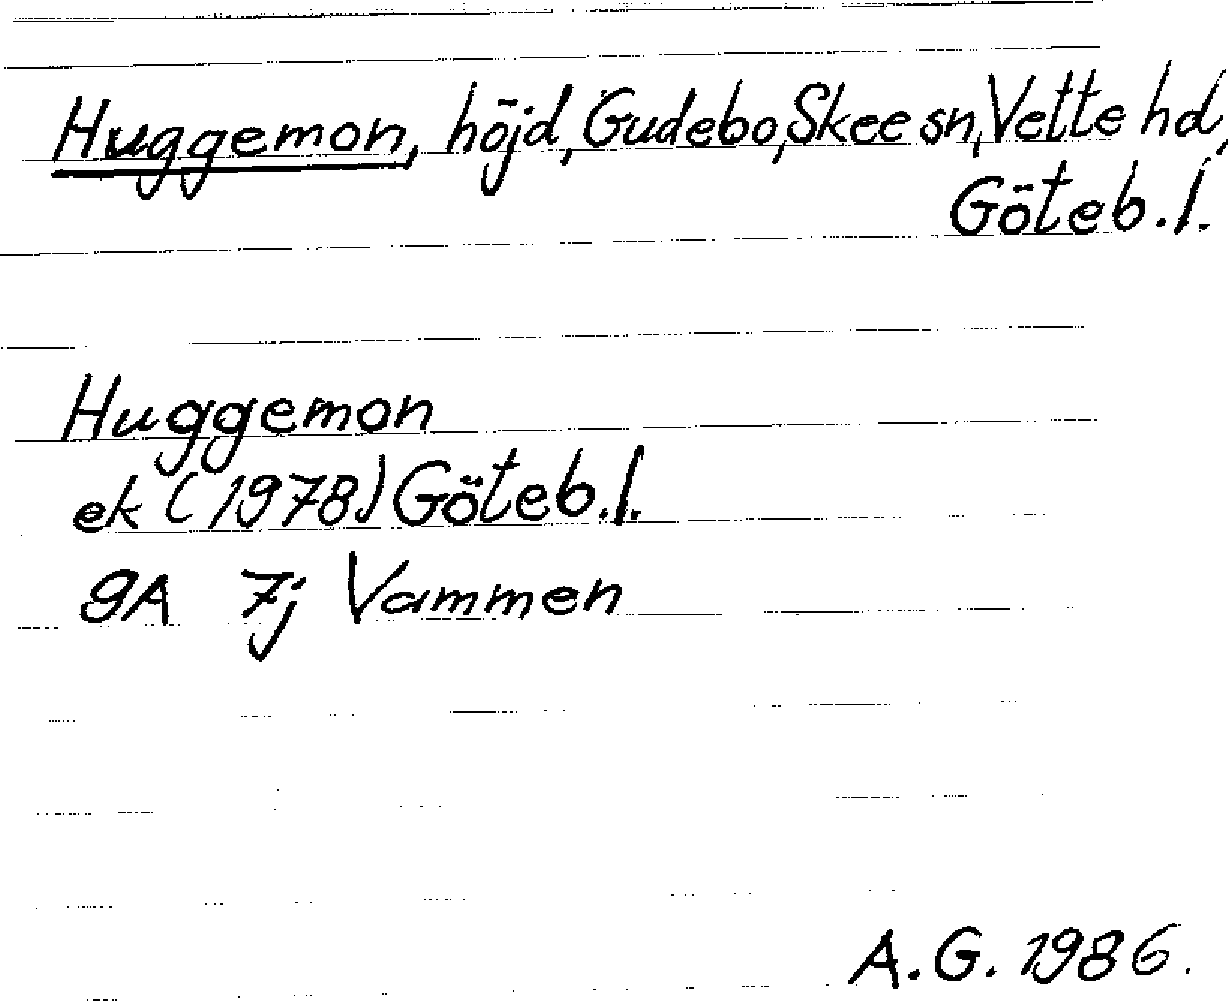 Huggemon, höjd, Gudebo, Skee sn, Vette hd,
Göteb. l.
Huggemon
ek (1978) Göteb. l.
9A 7j Vammen
A. G. 1986.